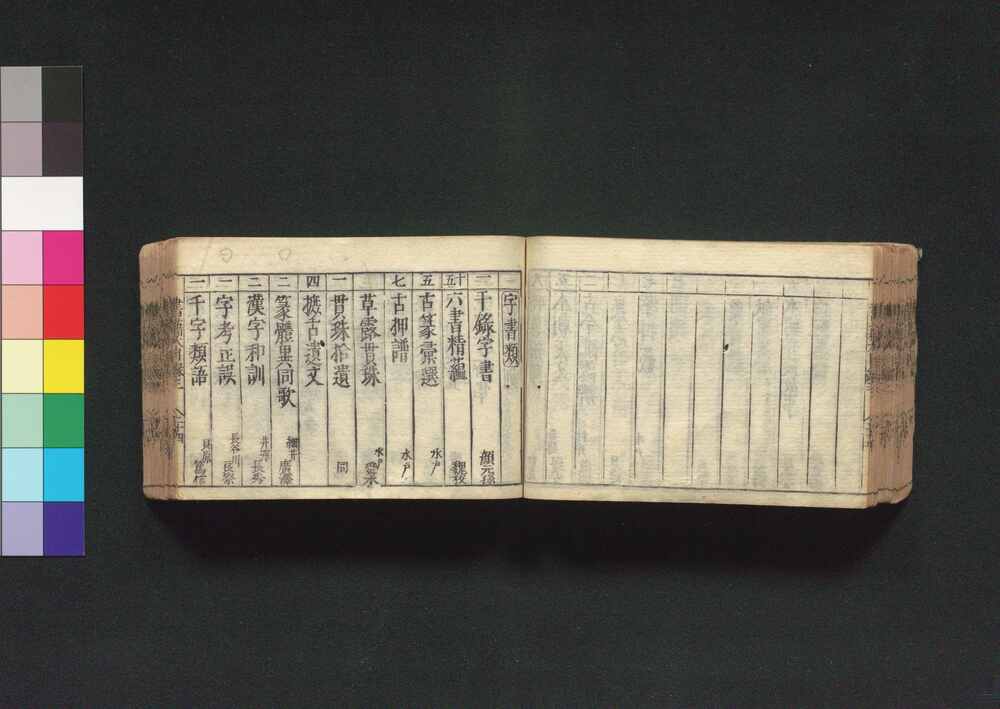 字書類
一 干祿字書 顔元孫
十五 六書精蘊 魏校
五 古篆彙選 水戸
七 古押譜 水戸
草露貫珠 水戸
一 貫珠拾遺 同
四 摭古遺文
二 篆體異同歌 細井廣澤
二 漢字和訓 井澤長秀
一 字考正誤 長谷川良察
一 千字類語 貝原篤信